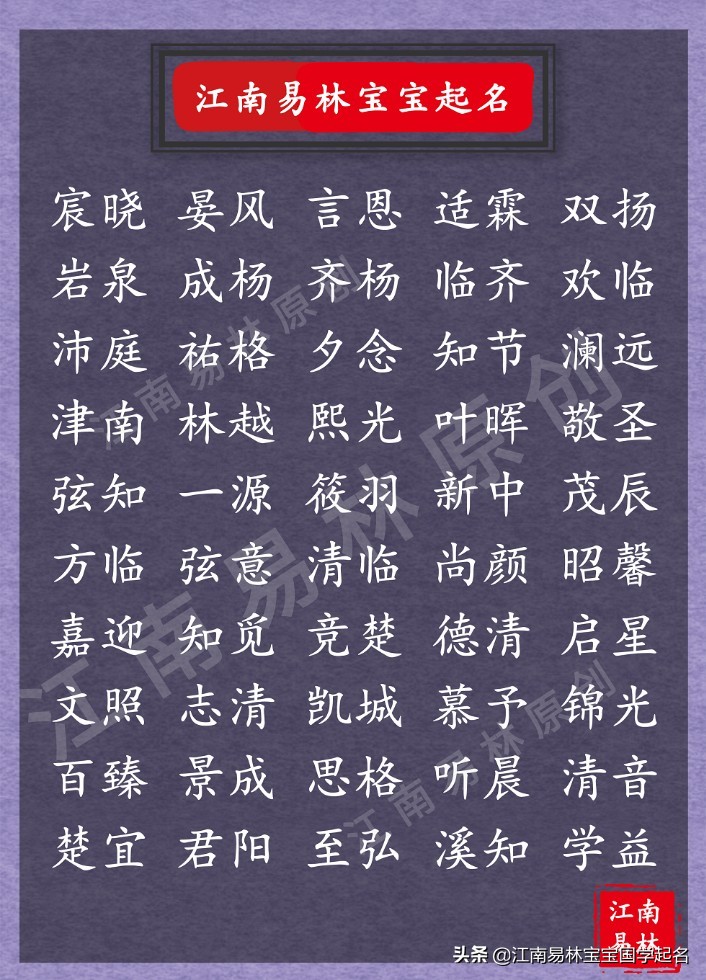 江南易林宝宝起名
宸晓 晏风 言恩 适霖 双扬
岩泉 成杨 齐杨 临齐 欢临
沛庭 祐格 夕念 知节 澜远
津南 林越 熙光 叶晖 敬圣
弦知 一源 筱羽 新中 茂辰
方临 弦意 清临 尚颜 昭馨
嘉迎 知觅 竞楚 德清 启星
文照 志清 凯城 慕予 锦光
百臻 景成 思格 听晨 清音
楚宜 君阳 至弘 溪知 学益
江南易林原创
江南易林原创
江南易林原创
江南
易林
头条 @江南易林宝宝国学起名